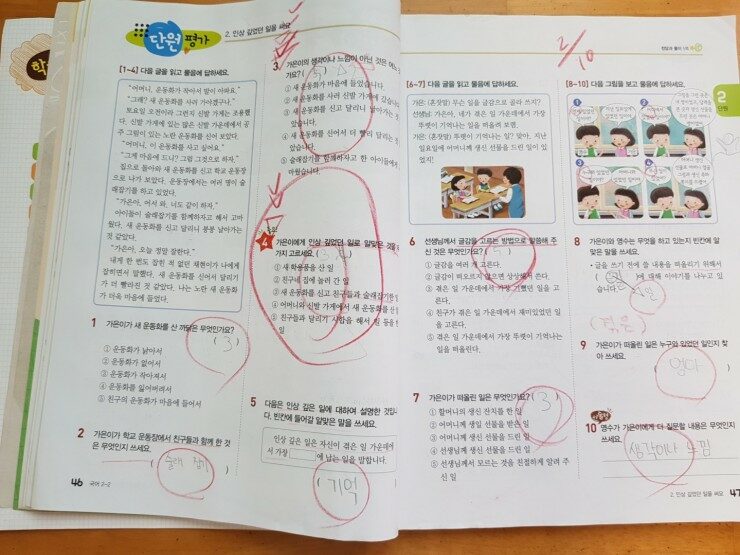 단원 평가
2. 인상 깊었던 일을 써요
[1~4] 다음 글을 읽고 물음에 답하세요.
"어머니, 운동화가 작아서 발이 아파요."
"그래? 새 운동화를 사러 가야겠구나."
토요일 오전이라 그런지 신발 가게는 조용했
다. 신발 가게에 있는 많은 신발 가운데에서 공
주 그림이 있는 노란 운동화를 신어 보았다.
"어머니, 이 운동화를 사고 싶어요."
"그게 마음에 드니? 그럼 그것으로 하자."
집으로 돌아와 새 운동화를 신고 학교 운동장
으로 나가 보았다. 운동장에서는 여러 명이 술
래잡기를 하고 있었다.
"가은아, 어서 와, 너도 같이 하자."
아이들이 술래잡기를 함께하자고 해서 고마
웠다. 새 운동화를 신고 달리니 붕붕 날아가는
것 같았다.
"가은아, 오늘 정말 잘한다."
내게 한 번도 잡힌 적 없던 재현이가 나에게
잡히면서 말했다. 새 운동화를 신어서 달리기
가 더 빨라진 것 같았다. 나는 노란 새 운동화
가 더욱 마음에 들었다.
1 가은이가 새 운동화를 산 까닭은 무엇인가요?
( 3 )
① 운동화가 낡아서
② 운동화가 없어서
③ 운동화가 작아져서
④ 운동화를 잃어버려서
⑤ 친구의 운동화가 마음에 들어서
2 가은이가 학교 운동장에서 친구들과 함께 한 것
은 무엇인지 쓰세요.
( 술래 잡기 )
46 국어 2-2
3 가은이의 생각이나 느낌이 아닌 것은
가요?
① 새 운동화가 마음에 들었습니다.
② 새 운동화를 사러 신발 가게에
③ 새 운동화를 신고 달리니 날아가는
았습니다.
④ 새 운동화를 신어서 더 빨리 달리는
았습니다.
⑤ 술래잡기를 함께하자고 한 아이들에게
마웠습니다.
4 가은이에게 인상 깊었던 일로 알맞은 것을
가지 고르세요.
① 새 학용품을 산 일
② 친구네 집에 놀러 간 일
③ 새 운동화를 신고 친구들과 술래잡기한
④ 어머니와 신발 가게에서 새 운동화를
⑤ 친구들과 달리기 시합을 해서 일 등을
일
5 다음은 인상 깊은 일에 대하여 설명한 것입
다. 빈칸에 들어갈 알맞은 말을 쓰세요.
인상 깊은 일은 자신이 겪은 일 가운데에
서 가장 에 남는 일을 말합니다.
( 기억
2/10
[6~7] 다음 글을 읽고 물음에 답하세요.
가은: (혼잣말) 무슨 일을 글감으로 골라 쓰지?
선생님: 가은아, 네가 겪은 일 가운데에서 가장
뚜렷이 기억나는 일을 떠올려 보렴.
가은: (혼잣말) 뚜렷이 기억나는 일? 맞아, 지난
일요일에 어머니께 생신 선물을 드린 일이 있
었지!
6 선생님께서 글감을 고르는 방법으로 말씀해 주
신 것은 무엇인가요?
① 글감을 여러 개 고른다.
② 글감이 떠오르지 않으면 상상해서 쓴다.
③ 겪은 일 가운데에서 가장 기뻤던 일을 고
른다.
④ 친구가 겪은 일 가운데에서 재미있었던 일
을 고른다.
⑤ 겪은 일 가운데에서 가장 뚜렷이 기억나는
일을 떠올린다.
7 가은이가 떠올린 일은 무엇인가요?
( 3 )
① 할머니의 생신 잔치를 한 일
② 어머니께 생일 선물을 받은 일
③ 어머니께 생신 선물을 드린 일
④ 선생님께 생신 선물을 드린 일
⑤ 선생님께서 모르는 것을 친절하게 알려 주
신 일
[8~10] 다음 그림을 보고 물음에 답하세요.
2
단원
8 가은이와 영수는 무엇을 하고 있는지 빈칸에 알
맞은 말을 쓰세요.
• 글을 쓰기 전에 쓸 내용을 떠올리기 위해서
( )에 대해 이야기를 나누고 있
습니다.
(겪은)
9 가은이가 떠올린 일은 누구와 있었던 일인지 찾
아 쓰세요.
( 엄마 )
10 영수가 가은이에게 더 질문할 내용은 무엇인지
쓰세요.
생각이나 느낌
2. 인상 깊었던 일을 써요 47